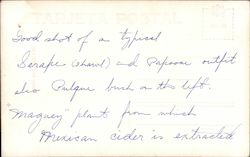 TARJETA POSTAL
Good shot of a typical
Serape (shawl) and Papoose outfit
also Pulque bush on the left.
"Maguey" plant from which
Mexican cider is extracted